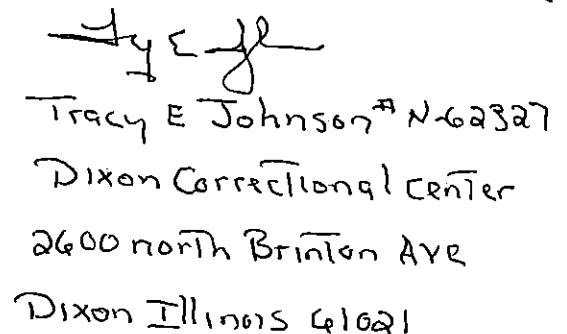 Tracy E Johnson # N-62327
Dixon Correctional Center
2600 north Brinton Ave
Dixon Illinois 61021